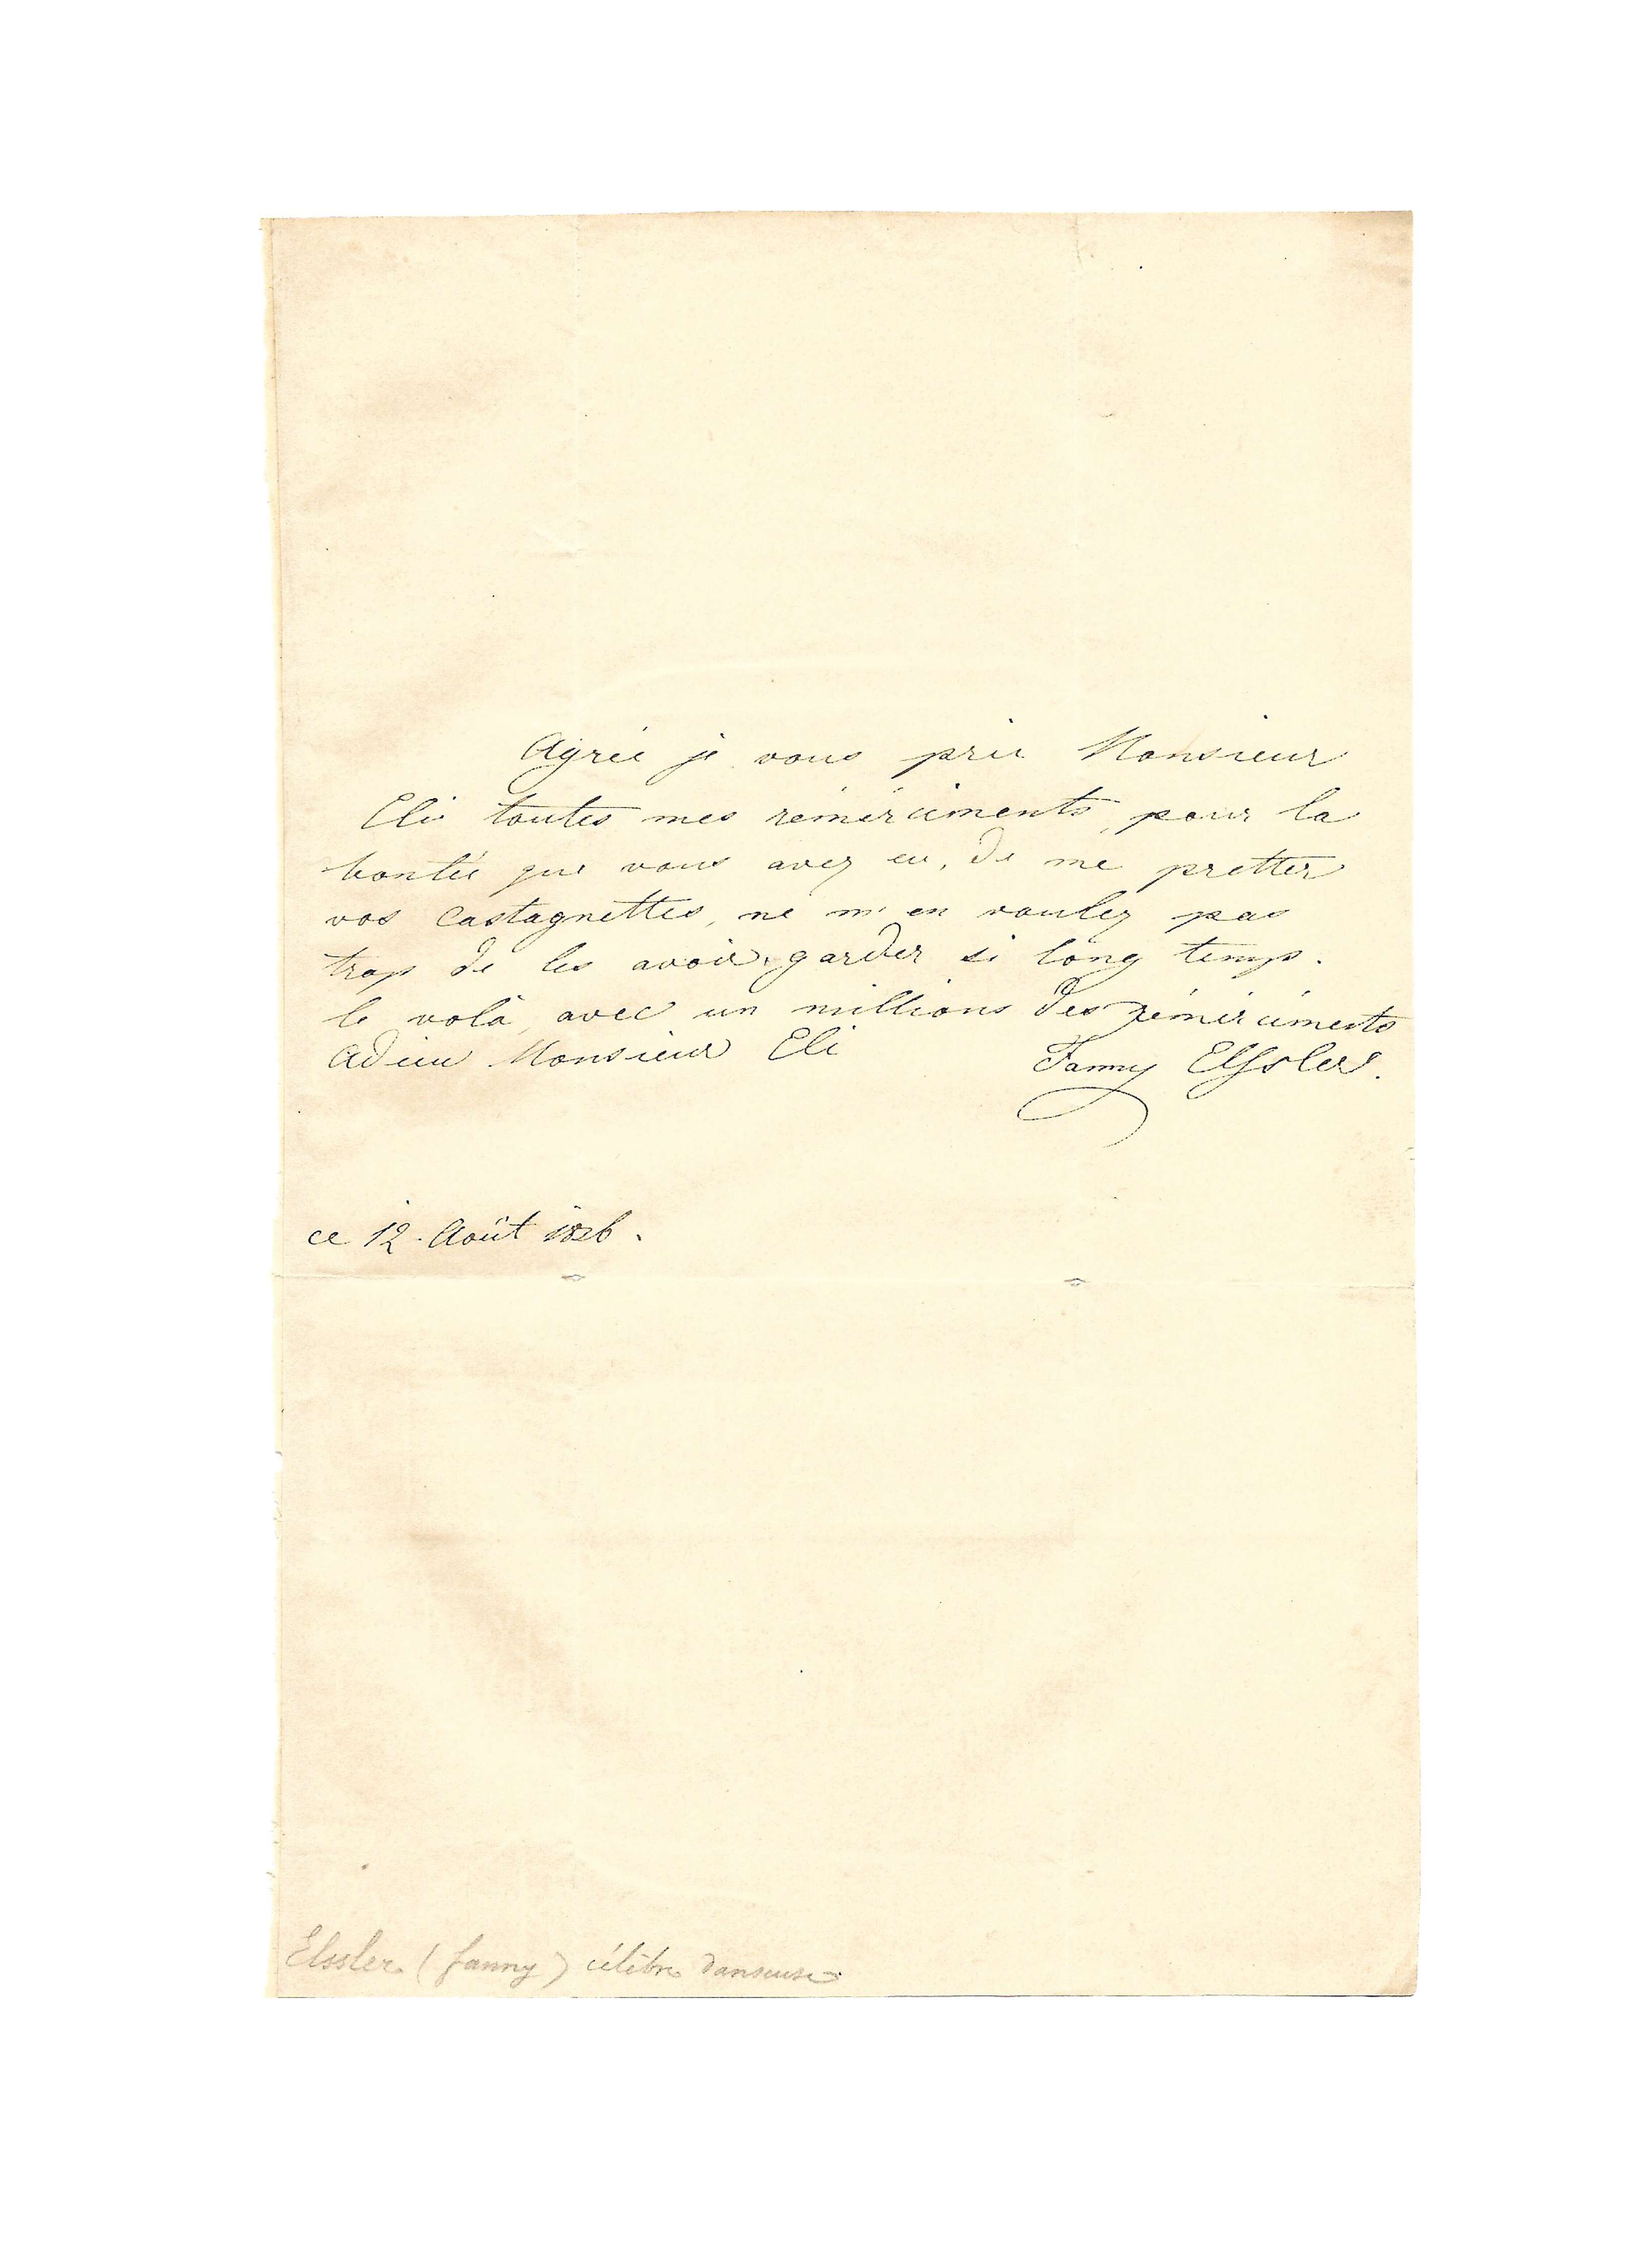 Agrée je vous prie Monsieur
Eli toutes mes rémérciments, pour la
bontée que vous avez eu, de me pretter
vos Castagnettes, ne m'en voulez pas
trop de les avoir garder si long temp.
le volà, avec un millions des rémérciments
Adieu Monsieur Eli
Fanny Elssler.
ce 12. Août
Elssler (fanny) célèbre danseuse